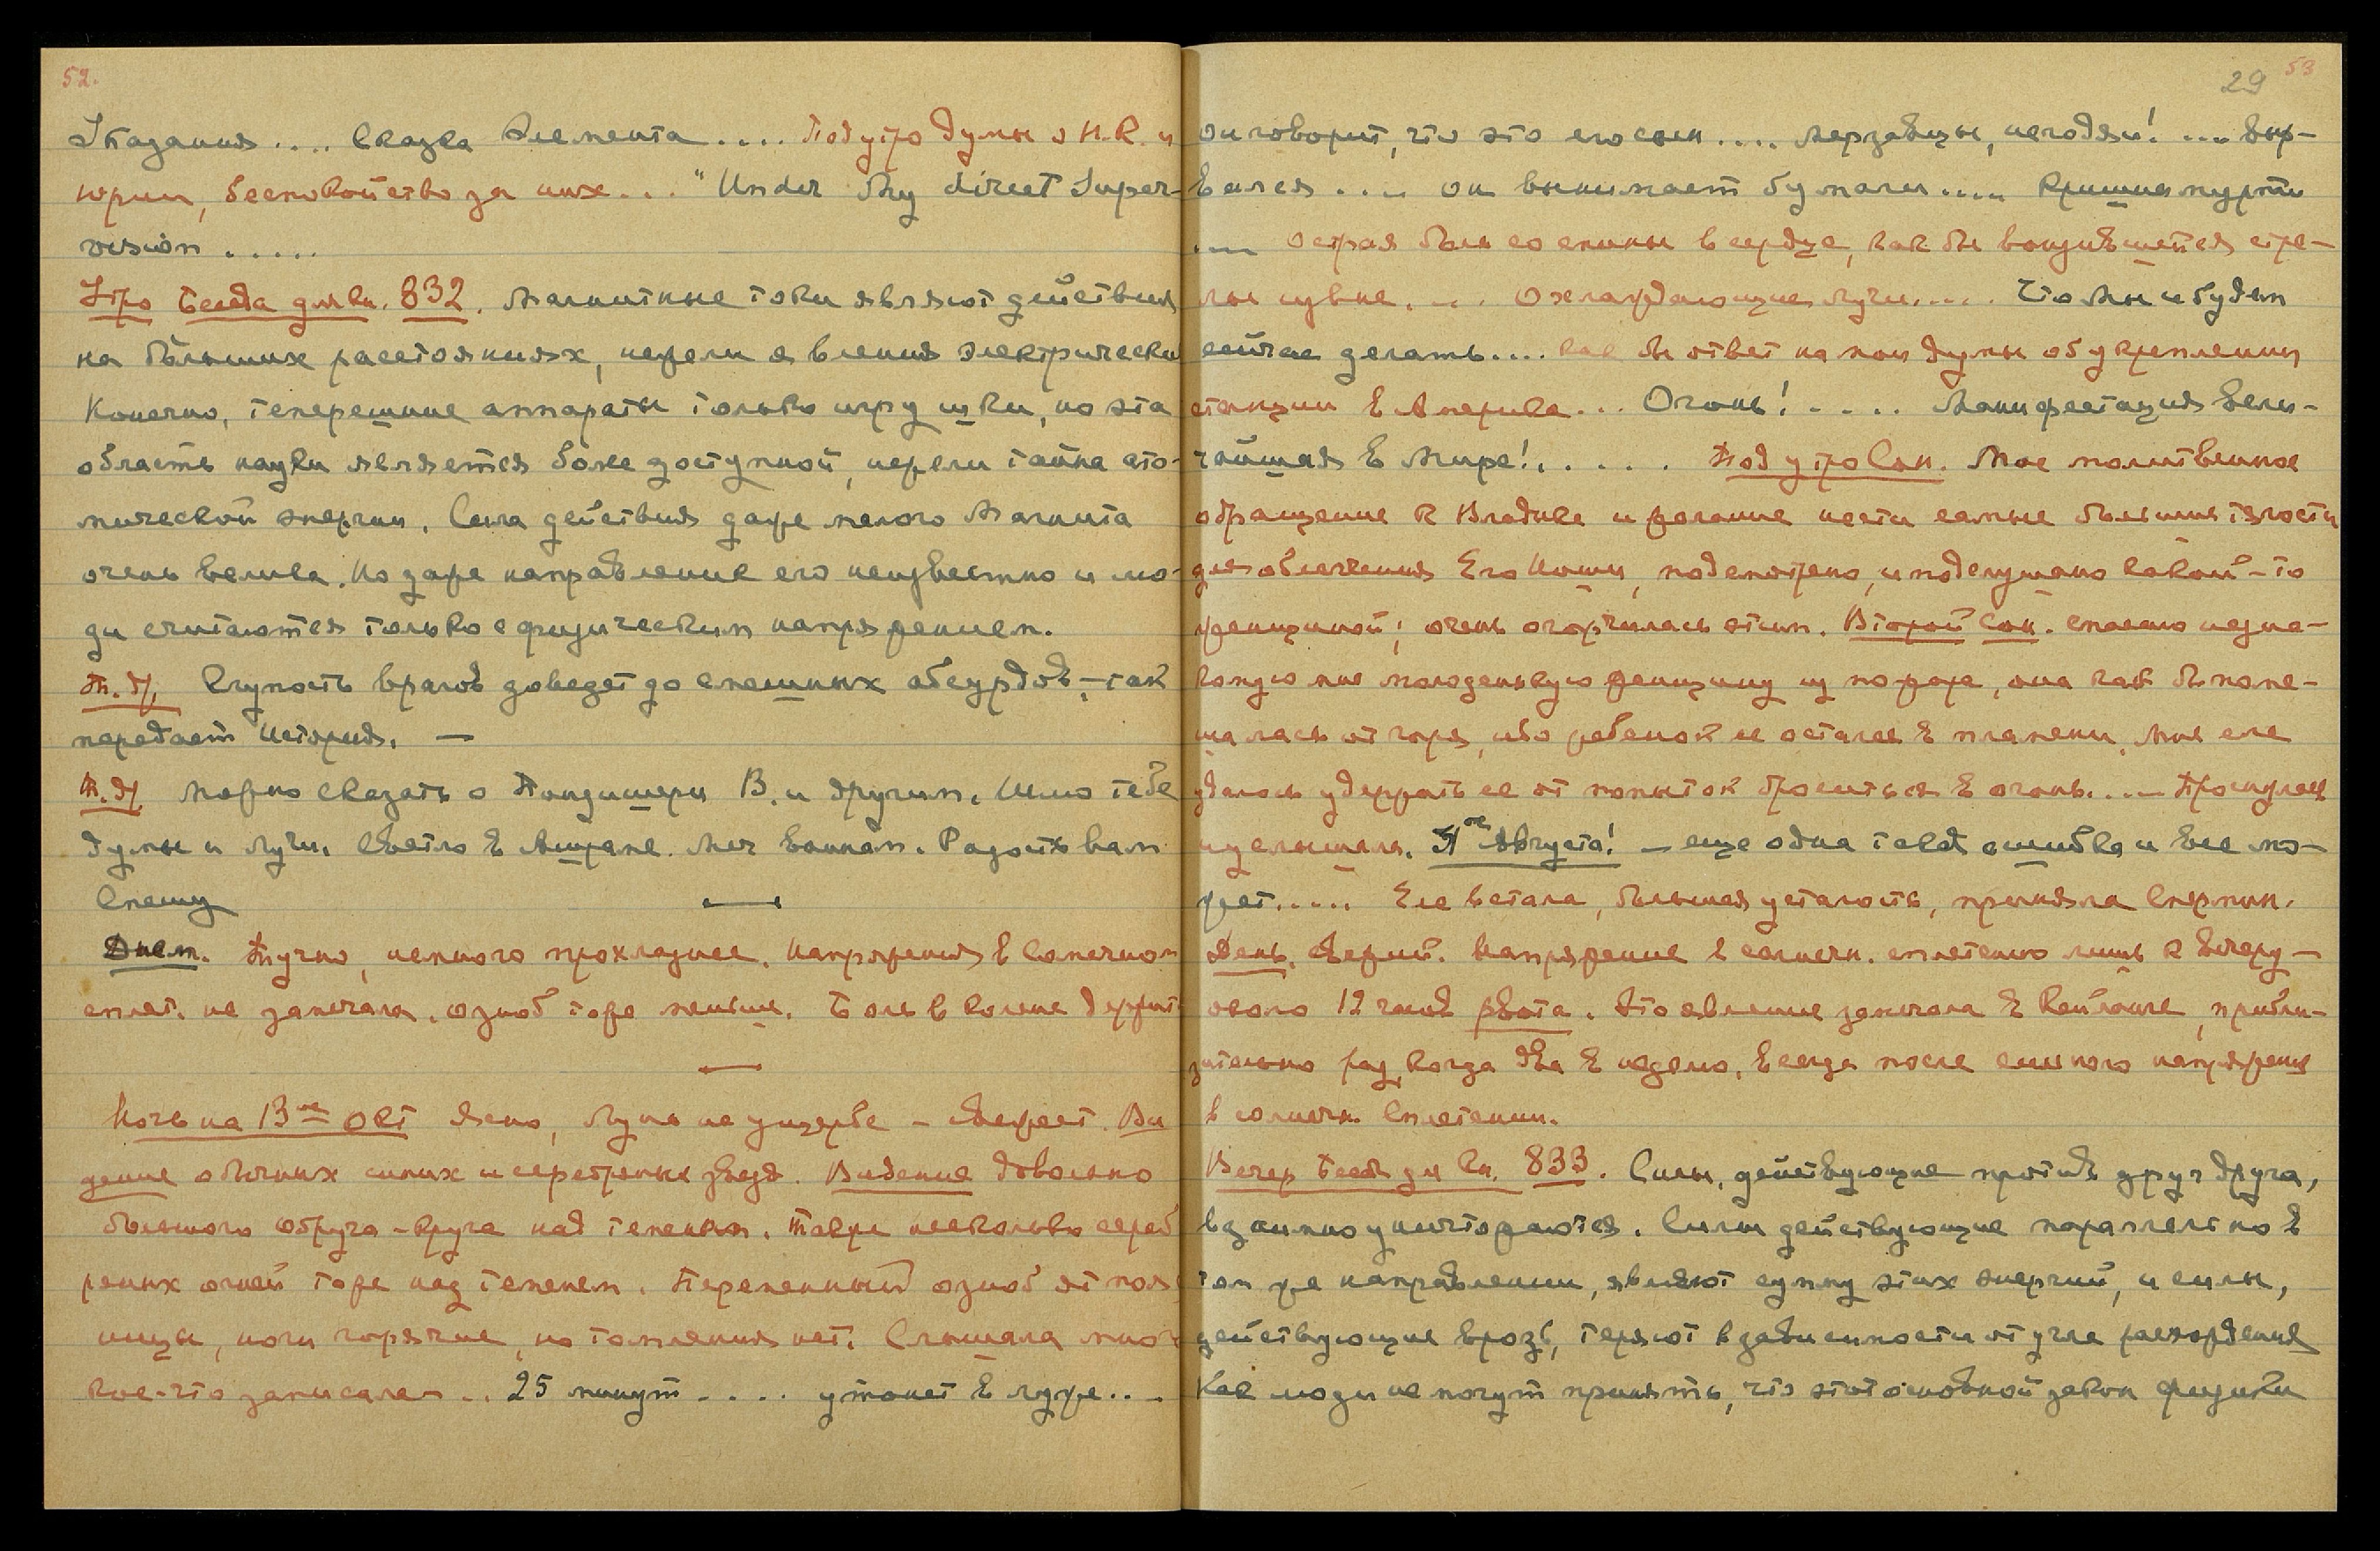 52.
Указания.... Сказка Элемента.... Под утро думы о Н.К. и
Юрии, беспокойство за них... "Under My direct Super-
vision.....
Утро Беседа для кн. 832. Магнитные токи являют действия
на бо́льших расстояниях, нежели явления электрически
Конечно, теперешние аппараты только игрушки, но эта
область науки является более доступной, нежели тайна ато-
мической энергии. Сила действия даже малого Магнита
очень велика. Но даже направление его неизвестно и лю-
ди считаются только с физическим напряжением.
Т.д. Глупость врагов доведет до смешных абсурдов, – так
передает История. —
Т.д. Можно сказать о Пондишери В. и другим. Шлю тебе
думы и лучи. Светло в Ашраме. Меч воинам. Радость вам
Спешу —
Днем. Тучно, немного прохладнее. Напряжения в Солнечном
сплет. не замечала. озноб тоже меньше. Боль в колене держит
—
Ночь на 13ое Окт Ясно, Луна на ущербе – Ви
дение обычных синих и серебряных звезд. Видение довольно
большого обруча-круга над теменем. Также несколько сереб
ряных огней тоже над теменем. Переменный озноб от пояс
ницы, ноги горячие, но томления нет. Слышала мно
кое-что записала... 25 минут.... утонет в луже...
29 53
он говорит, что это его сын.... мерзавцы, негодяи! .... Выр-
вался.... он вынимает бумаги.... Кришнамурти
.... Острая боль со спины в сердце, как бы вонзившейся стре-
лы извне.... Охлаждающие лучи.... Что Мы и будем
сейчас делать.... как бы ответ на мои думы об укреплении
станции в Америке... Огонь! ..... Манифестация Вели-
чайшая в Мире! ..... Под утро Сон. Мое молитвенное
обращение к Владыке и желание нести самые большие тягости
для облегчения Его Ноши, подсмотрено, и подслушано какой-то
женщиной; очень огорчилась этим. Второй Сон. спасаю незна-
комую мне молоденькую женщину из пожара, она как бы поме-
шалась от горя, ибо ребенок ее остался в пламени. Мне еле
удалось удержать ее от попыток броситься в огонь.... Проснулась
и услышала. Августа! – еще одна такая ошибка и все мо-
жет..... Еле встала, большая усталость, приняла Спермин.
День. Свежий. Напряжение в солнечн. сплетению лишь к вечеру –
около 12 часов рвота. Это явление замечала в Кейланге, прибли-
зительно раз, когда два в неделю, всегда после сильного напряжения
в солнечн. Сплетении.
Вечер Беседа для Кн. 833. Силы, действующие против друг друга,
взаимно уничтожаются. Силы действующие параллельно в
том же направлении, являют сумму этих энергий, и силы,
действующие врозь, теряют в зависимости от угла расхождения
Как люди не могут принять, что этот основной закон физики